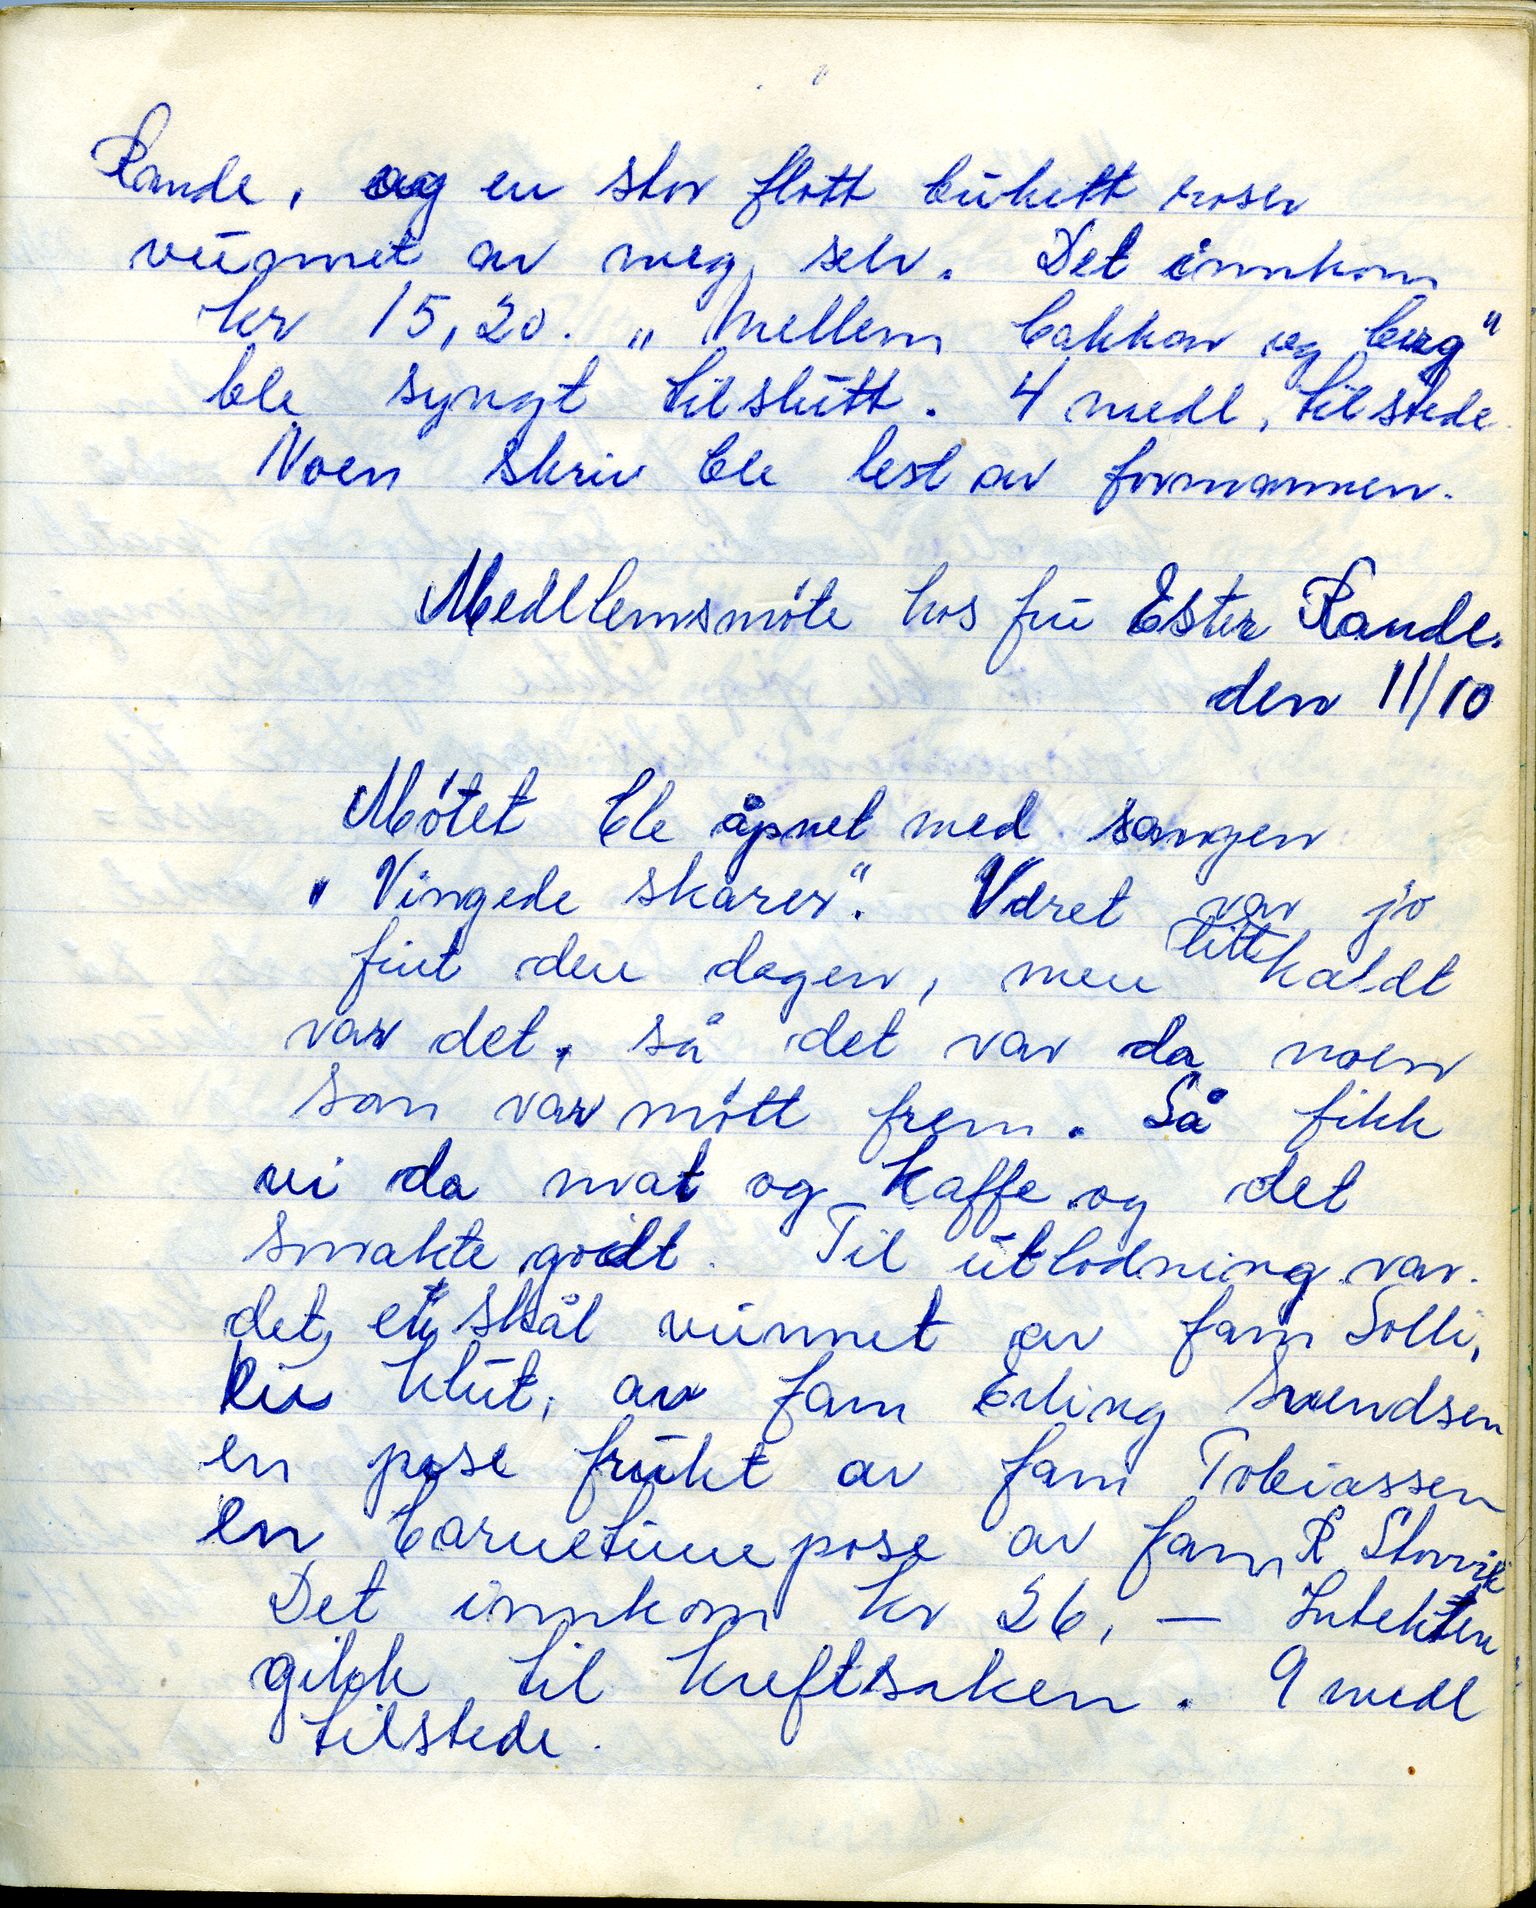 Rande, og en stor flott bukett roser
vunnet av meg selv. Det innkom
kr 15,20. "Mellem bakkar og berg"
ble syngt tilslutt. 4 medl, tilstede.
Noen skriv ble lest av formannen.
Medllemsmöte hos fru Ester Rande.
den 11/10
Mötet ble åpnet med sangen
"Vingede skarer". Været var jo
fint den dagen, men litt kaldt
var det, så det var da noen
som var mött frem. Så fikk
vi da mat og kaffe og det
smakte godt. Til utlodning var
det, skål vunnet av fam Solli,
klut, av fam Erling Svendsen
en pose frukt av fam Tobiassen
en pose av fam R Storvik
Det innkom kr 26,— Intekten
gikk til kreftsaken. 9 medl
tilstede.